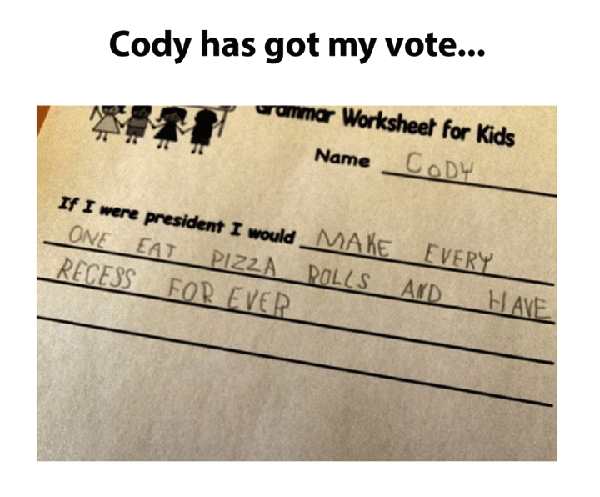 Cody has got my vote...
Grammar Worksheet for Kids
Name CODY
If I were president I would MAKE EVERY
ONE EAT PIZZA ROLLS AND HAVE
RECESS FOR EVER